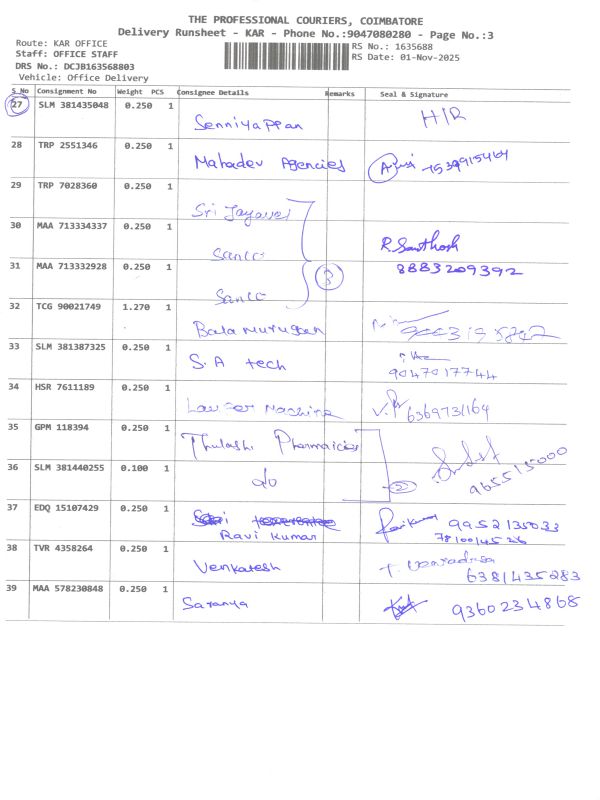 THE PROFESSIONAL COURIERS, COIMBATORE
Delivery Runsheet - KAR - Phone No.:9047080280 - Page No.:3
Route: KAR OFFICE
Staff: OFFICE STAFF
DRS No.: DCJB163568803
Vehicle: Office Delivery
RS No.: 1635688
RS Date: 01-Nov-2025
S No Consignment No Weight PCS Consignee Details Remarks Seal & Signature
27 SLM 381435048 0.250 1 Senniyappan H/R
28 TRP 2551346 0.250 1 Mahadev Agencies 7539915464
29 TRP 7028360 0.250 1 Sri Jayavel
30 MAA 713334337 0.250 1 Sanco R. Santhosh
31 MAA 713332928 0.250 1 Sanco 3 8883209392
32 TCG 90021749 1.270 1 Bala Murugan
33 SLM 381387325 0.250 1 S.A tech 9047017744
34 HSR 7611189 0.250 1 Laufer Machine 6369731164
35 GPM 118394 0.250 1 Thulashi Pharmacies
36 SLM 381440255 0.100 1 do 2 9655515000
37 EDQ 15107429 0.250 1 Ravi Kumar 9952135033
38 TVR 4358264 0.250 1 Venkatesh 6381435283
39 MAA 578230848 0.250 1 Saranya 9360234868